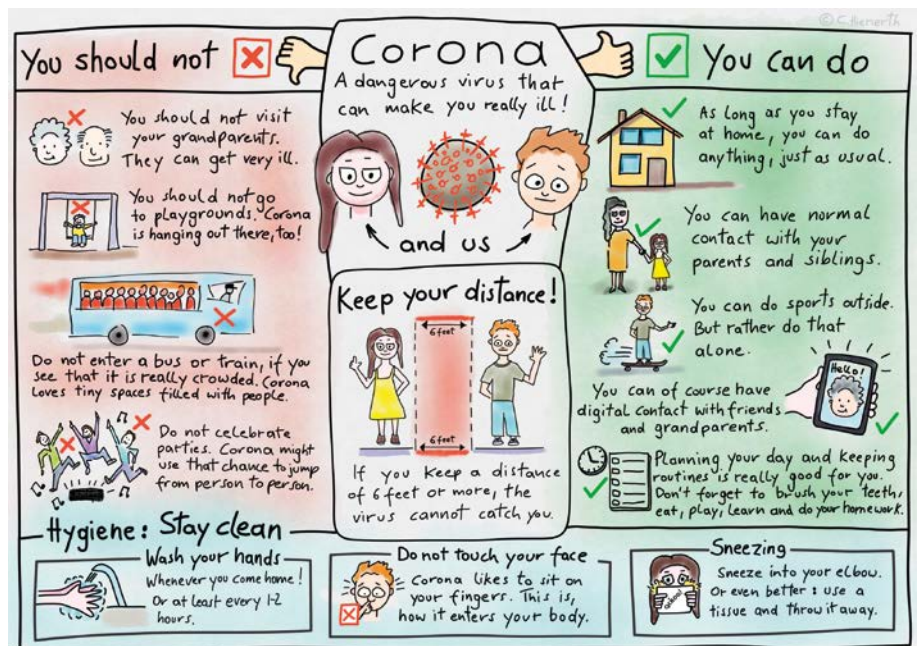 © C. Hienerth
You should not
Corona
A dangerous virus that
can make you really ill!
and us
You can do
You should not visit
your grandparents.
They can get very ill.
You should not go
to playgrounds. Corona
is hanging out there, too!
Do not enter a bus or train, if you
see that it is really crowded. Corona
loves tiny spaces filled with people.
Do not celebrate
parties. Corona might
use that chance to jump
from person to person.
Keep your distance!
6 feet
6 feet
If you keep a distance
of 6 feet or more, the
virus cannot catch you.
As long as you stay
at home, you can do
anything, just as usual.
You can have normal
contact with your
parents and siblings.
You can do sports outside.
But rather do that
alone.
Hello!
You can of course have
digital contact with friends
and grandparents.
Planning your day and keeping
routines is really good for you.
Don't forget to brush your teeth,
eat, play, learn and do your homework.
Hygiene: Stay clean
Wash your hands
Whenever you come home!
Or at least every 1-2
hours.
Do not touch your face
Corona likes to sit on
your fingers. This is,
how it enters your body.
Sneezing
Sneeze into your elbow.
Or even better: use a
tissue and throw it away.